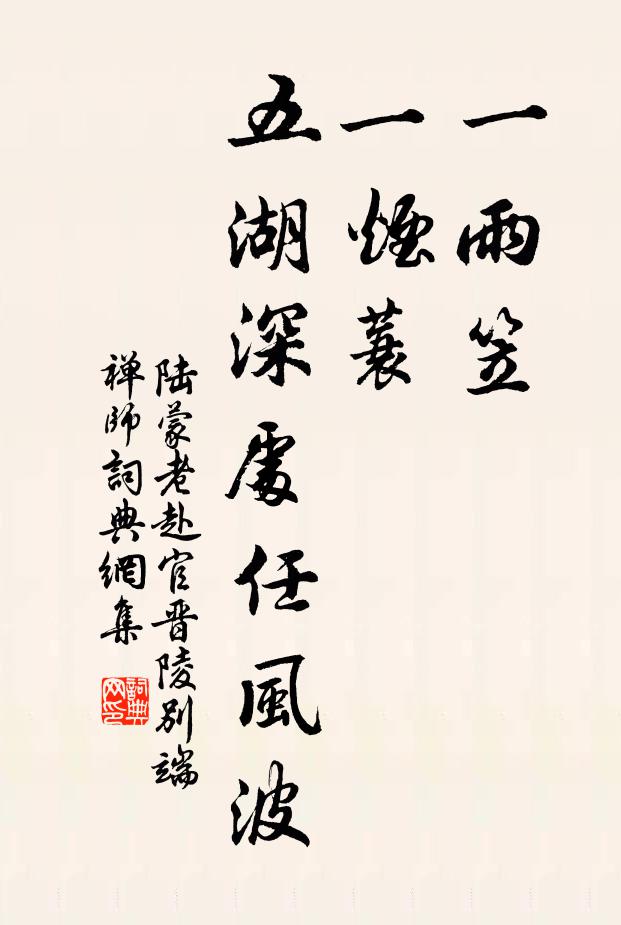 一雨笠
一煙蓑
五湖深處任風波
陆蒙老赴官晋陵别端
禅师詞典網集
詞典
网印